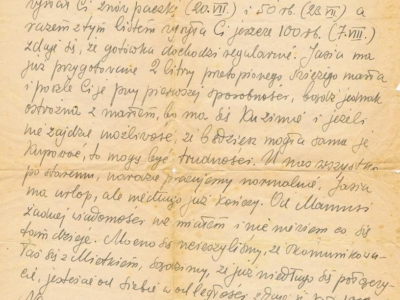 Ci znów paczkę (20.VII.) i 50 rb. (28.VII) a
razem z tym listem Ci jeszcze 100 rb. (7.VIII.)
zdaje się, że gotówka dochodzi regularnie. Jasia ma
już przygotowane 2 litry przetopionego świeżego masła
i pośle Ci je przy pierwszej sposobności, bądź jednak
ostrożna z masłem, bo ma się Ku zimie i jeżeli
nie zajdzie możliwość, że będziesz mogła sama je
kupować, to mogą być trudności. U nas wszystko
po staremu, narazie pracujemy normalnie, Jasia
ma urlop, ale niedługo już kończy. Od Mamusi
żadnej wiadomości nie miałem i nie wiem co się
tam dzieje. Mocno się ucieszyliśmy, że skomunikowa-
łaś się z Mietkiem, sądzimy, że już niedługo się połączy-
cie, jesteście od siebie w odległości